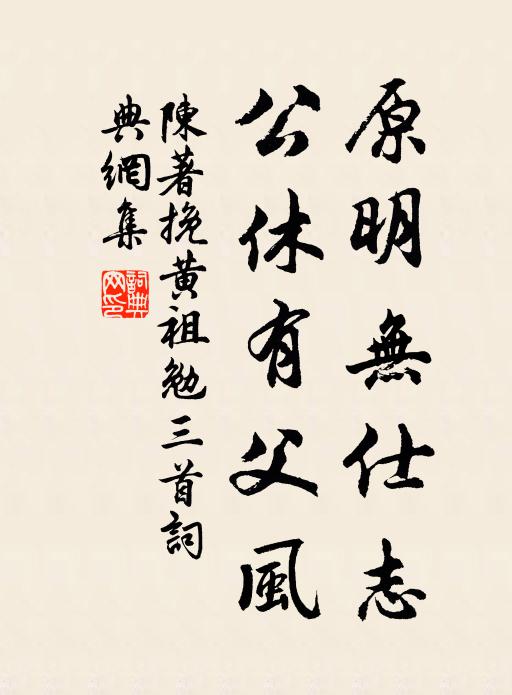 原明無仕志
公休有父風
陳著挽黄祖勉三首詞
典網集
詞典網印